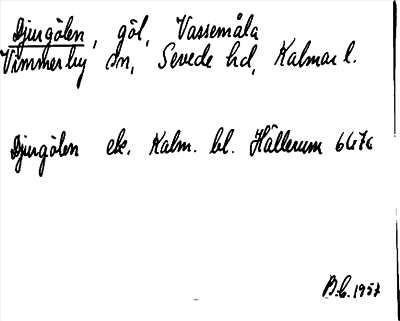 Djurgölen, göl, Vassemåla
Vimmerby sn, Sevede hd, Kalmar l.
Djurgölen ek. Kalm. bl. Hällerum 6g7c
B.E. 1957